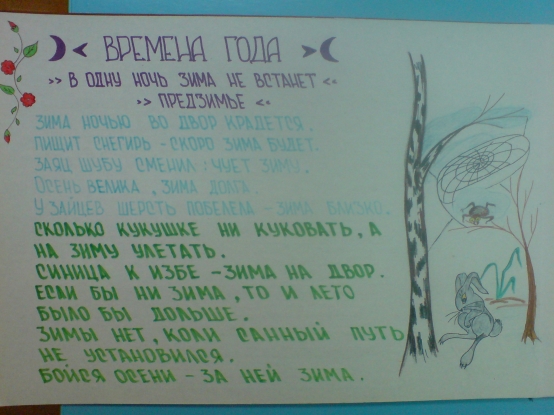 ВРЕМЕНА ГОДА
>> В ОДНУ НОЧЬ ЗИМА НЕ ВСТАНЕТ <<
>> ПРЕДЗИМЬЕ <<
ЗИМА НОЧЬЮ ВО ДВОР КРАДЕТСЯ.
ПИЩИТ СНЕГИРЬ - СКОРО ЗИМА БУДЕТ.
ЗАЯЦ ШУБУ СМЕНИЛ: ЧУЕТ ЗИМУ.
ОСЕНЬ ВЕЛИКА, ЗИМА ДОЛГА.
У ЗАЙЦЕВ ШЕРСТЬ ПОБЕЛЕЛА - ЗИМА БЛИЗКО.
СКОЛЬКО КУКУШКЕ НИ КУКОВАТЬ, А
НА ЗИМУ УЛЕТАТЬ.
СИНИЦА К ИЗБЕ - ЗИМА НА ДВОР.
ЕСЛИ БЫ НИ ЗИМА, ТО И ЛЕТО
БЫЛО БЫ ДОЛЬШЕ.
ЗИМЫ НЕТ, КОЛИ САННЫЙ ПУТЬ
НЕ УСТАНОВИЛСЯ.
БОЙСЯ ОСЕНИ - ЗА НЕЙ ЗИМА.